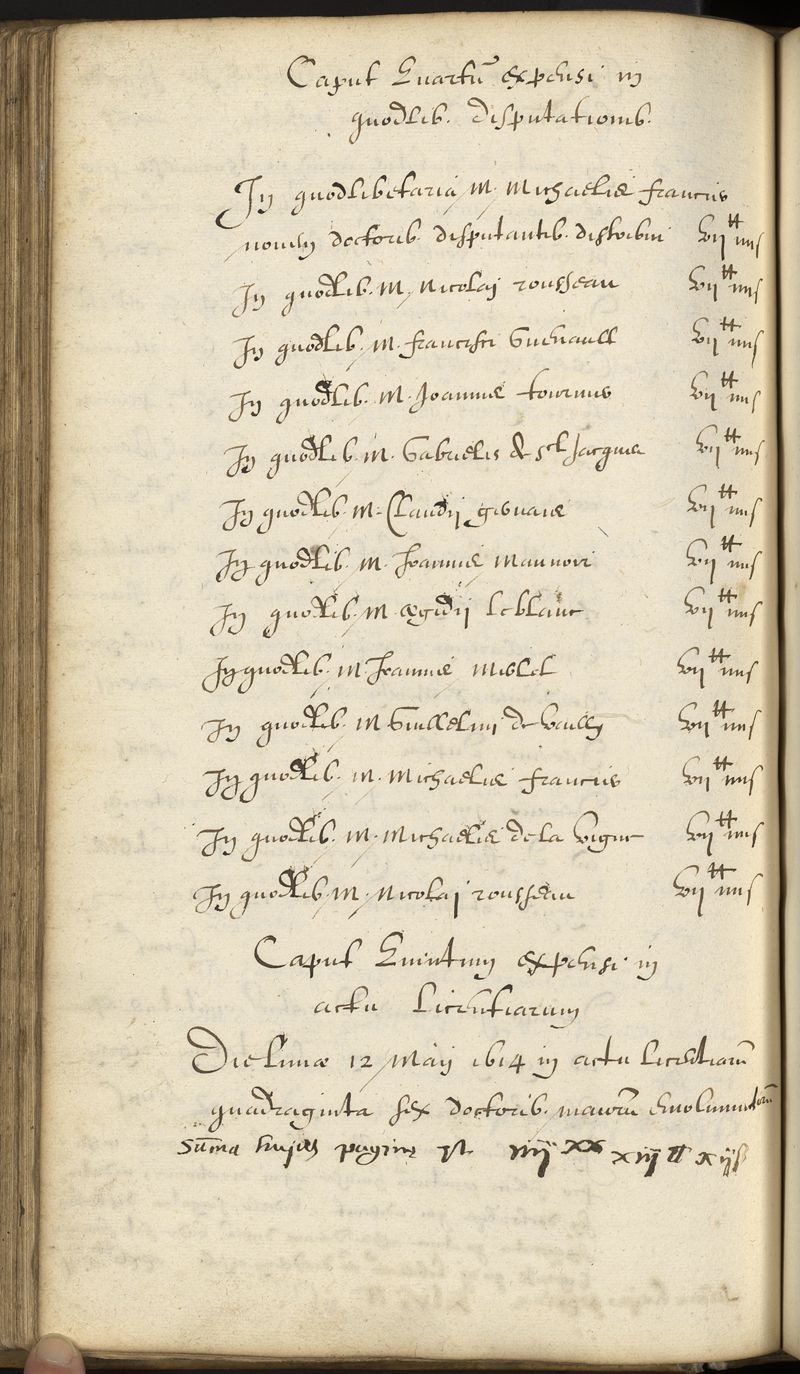 Caput Quartū expensi in
quodlib. disputationib.
In quodlibetaria M. Michaelis francois
novem doctorib. disputantib. distribui vii ₶ iiii s
In quodlib. M. Nicolai rousseau vii ₶ iiii s
In quodlib. M. francisci Guenault vii ₶ iiii s
In quodlib. M. Joannis tournus vii ₶ iiii s
In quodlib. M. Gabrielis de Sct Jacques vii ₶ iiii s
In quodlib. M. Claudij vii ₶ iiii s
In quodlib. M. Joannis Mannori vii ₶ iiii s
In quodlib. M. ægidij leblanc vii ₶ iiii s
In quodlib. M. Joannis Merlet vii ₶ iiii s
In quodlib. M Guillelmi de vailly vii ₶ iiii s
In quodlib. M. Michaelis francois vii ₶ iiii s
In quodlib. M. Michaelis de la vigne vii ₶ iiii s
In quodlib. M. Nicolai rousseau vii ₶ iiii s
Caput Quintum expensi in
actu licentiarum
Die lunæ 12 Maij 1614 in actu licētiarū
quadraginta sex doctorib. maiorū emolumentorū
Sūma hujus paginę est iiij XX xiij ₶ xij s